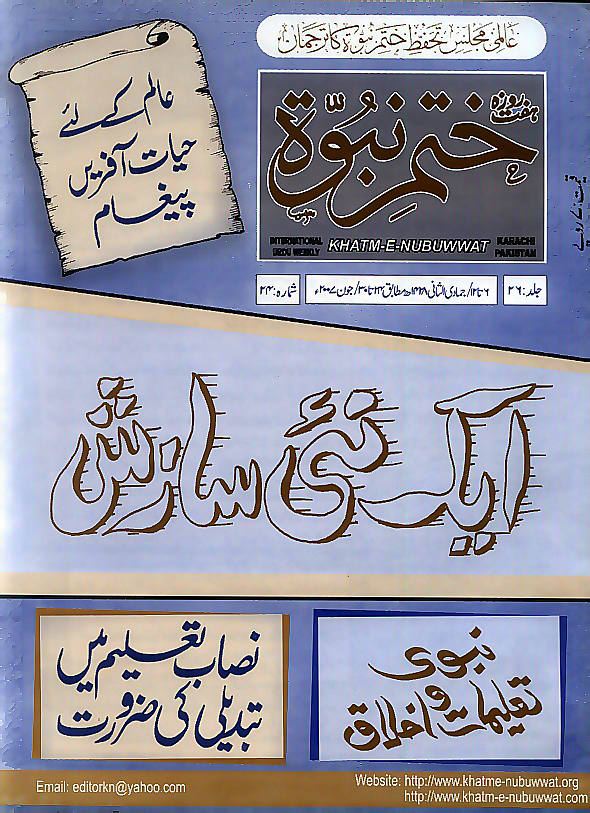 عالمی مجلس تحفظ ختم نبوۃ کا ترجمان
ہفت روزہ
ختم نبوۃ
INTERNATIONAL
URDU WEEKLY
KHATM-E-NUBUWWAT
KARACHI
PAKISTAN
قیمت: ۷ روپے
عالم کے لئے
حیات آفریں
پیغام
جلد: ۲۶
۶ تا ۱۲/ جمادی الثانی ۱۴۲۸ھ مطابق ۲۳ تا ۳۰/ جون ۲۰۰۷ء
شمارہ: ۲۴
ایک نئی سازش
نبوی
تعلیمات و اخلاق
نصاب تعلیم میں
تبدیلی کی ضرورت
Email: editorkn@yahoo.com
Website: http://www.khatme-nubuwwat.org
http://www.khatm-e-nubuwwat.com